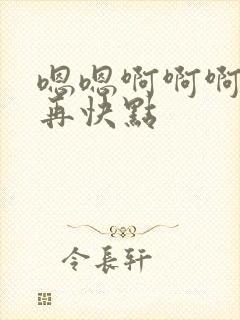 嗯嗯啊啊啊
再快點
令長轩